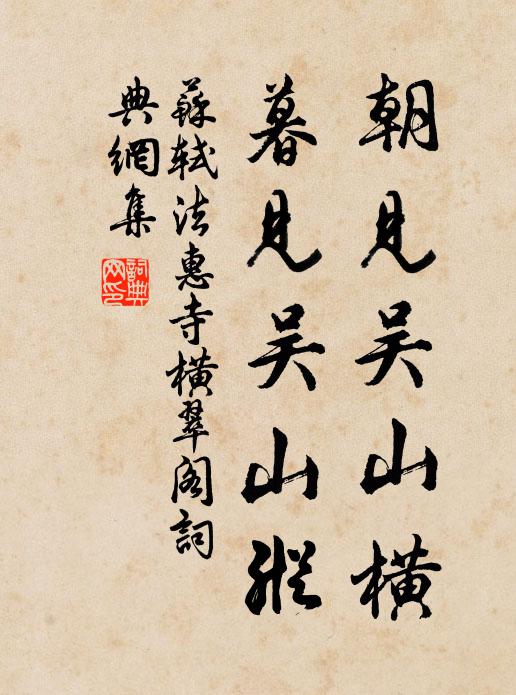 朝見吴山橫
暮見吴山縱
蘇軾法惠寺橫翠閣詞
典網集
詞典網印